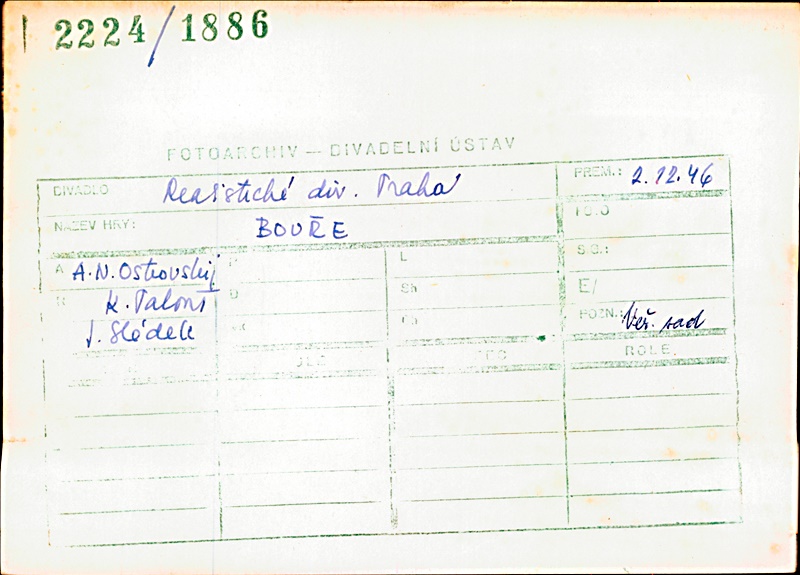 2224/1886
FOTOARCHIV – DIVADELNÍ ÚSTAV
DIVADLO Realistické div. Praha
PREM.: 2.12.46
NÁZEV HRY: BOUŘE
A A.N. Ostrovskij P L SIG.:
R K. Palouš D Sh E/
J. Sládek POZN.: Veř. sad
ROLE